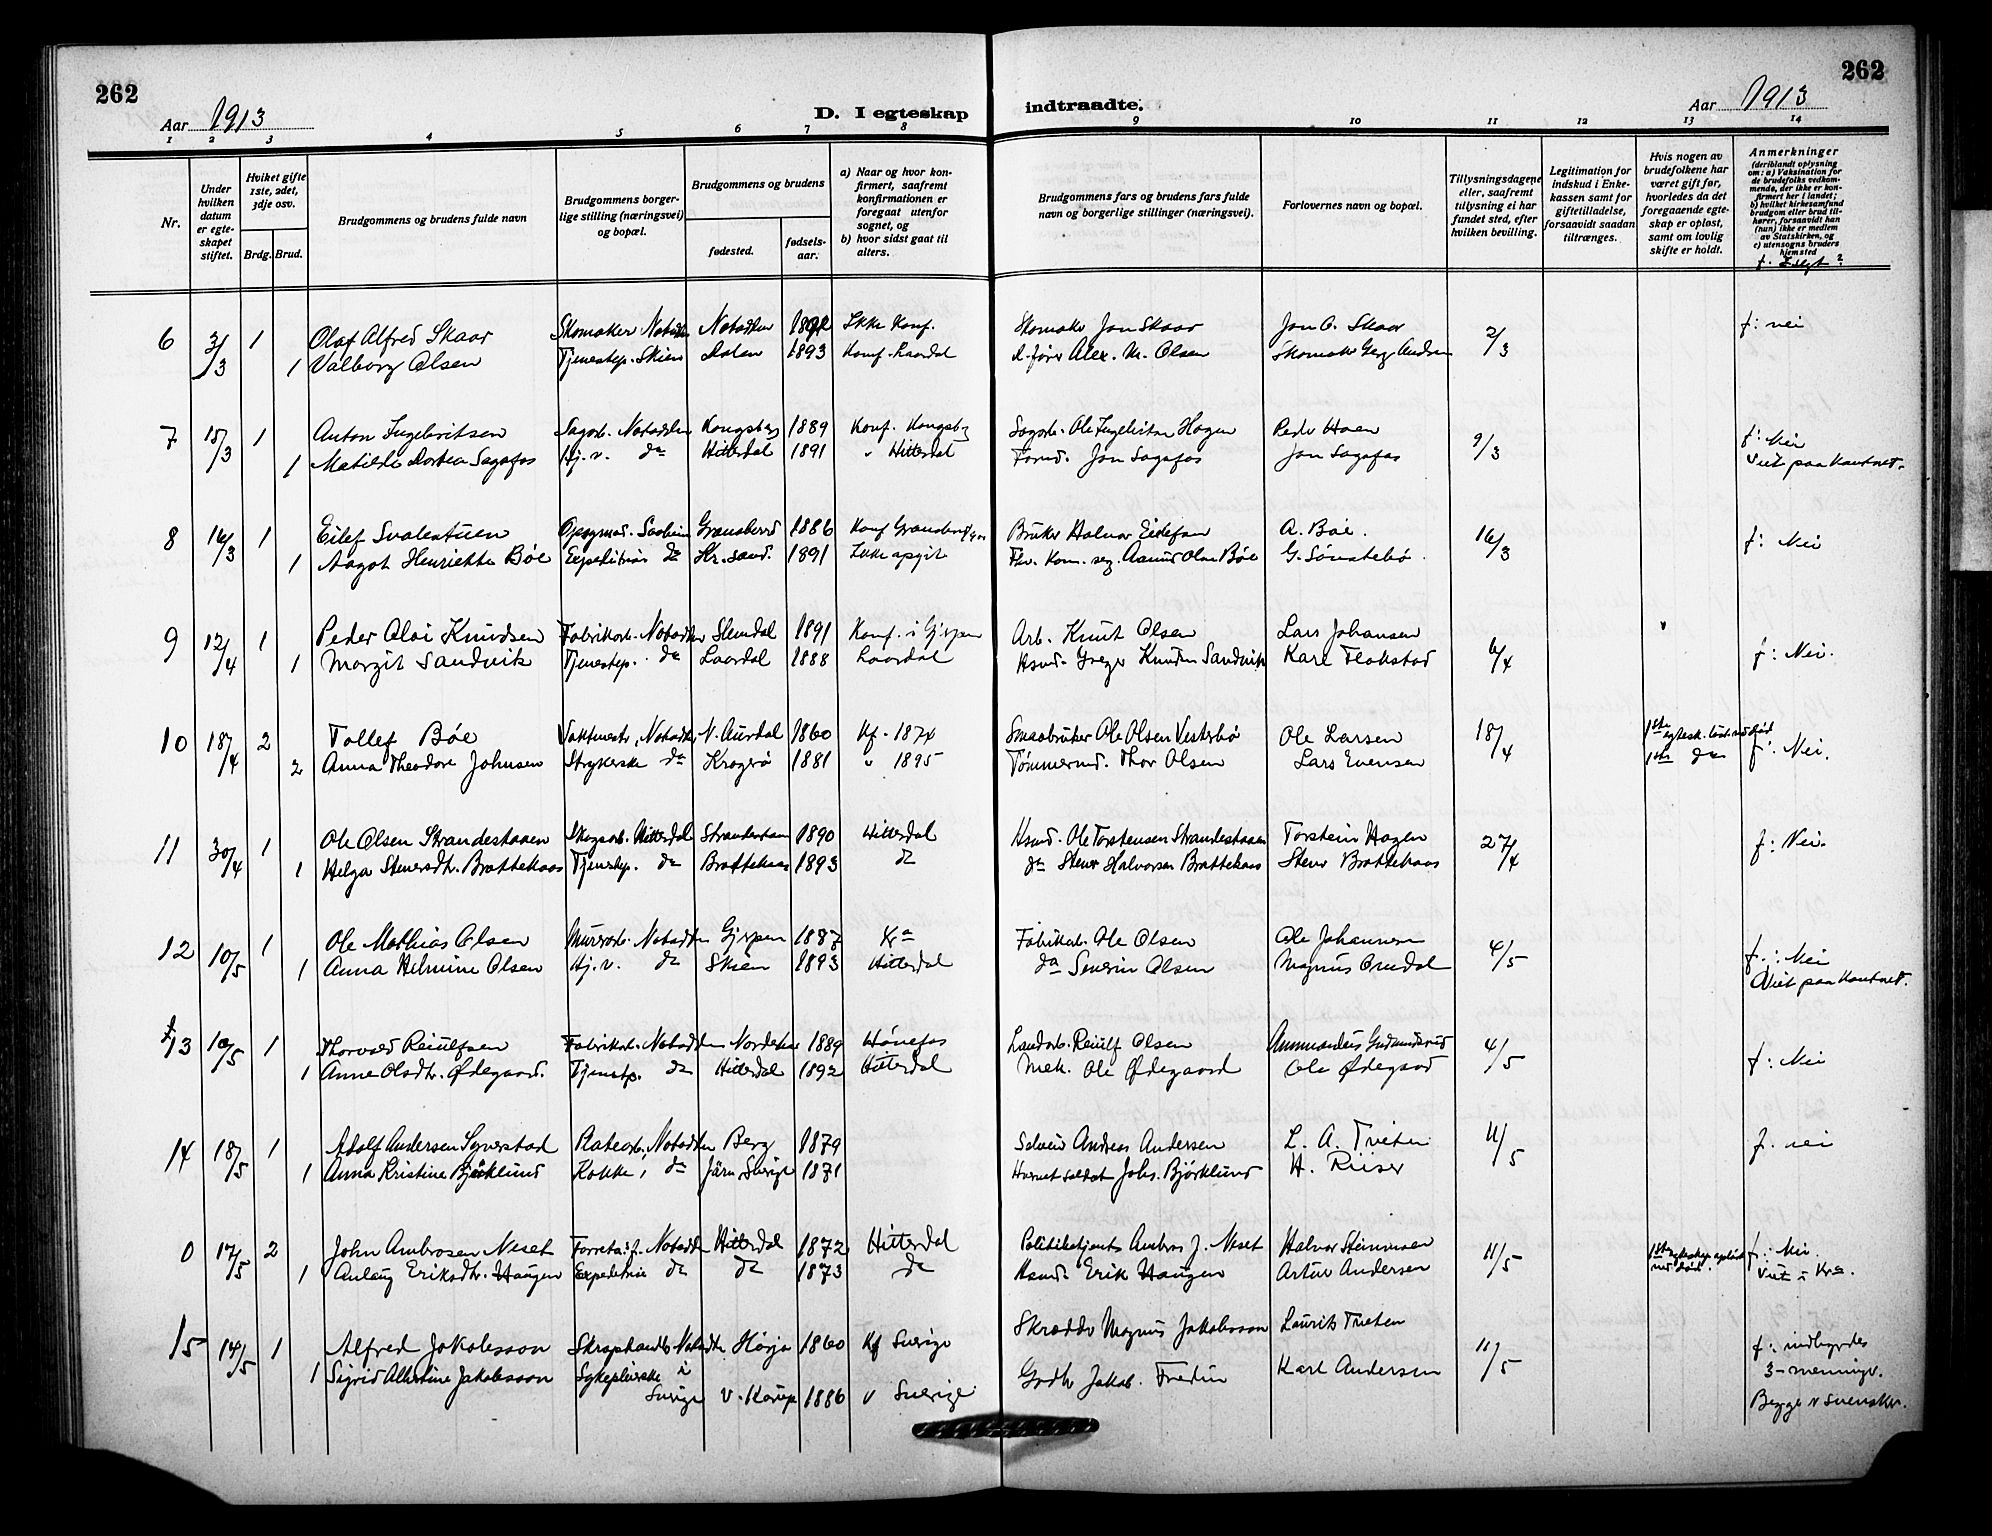 262
262
Aar 1913
D. I egteskap indtraadte.
Aar 1913
1 2 3 4 5 6 7 8 9 10 11 12 13 14
Nr.
Under hvilken datum er egteskapet stiftet.
Hviket gifte 1ste, 2det, 3dje osv.
Brdg. Brud.
Brudgommens og brudens fulde navn
Brudgommens borgerlige stilling (næringsvei) og bopæl.
Brudgommens og brudens
fødested.
fødselsaar.
a) Naar og hvor konfirmert, saafremt konfirmationen er foregaat utenfor sognet, og
b) hvor sidst gaat til alters.
Brudgommens fars og brudens fars fulde navn og borgerlige stillinger (næringsvei).
Forlovernes navn og bopæl.
Tillysningsdagene eller, saafremt tillysning ei har fundet sted, efter hvilken bevilling.
Legitimation for indskud i Enkekassen samt for giftetilladelse, forsaavidt saadan tiltrænges.
Hvis nogen av brudefolkene har været gift før, hvorledes da det foregaaende egteskap er opløst, samt om lovlig skifte er holdt.
Anmerkninger (deriblandt oplysning om: a) Vaksination for de brudefolks vedkommende, der ikke er konfirmert her i landet; b) hvilket kirkesamfund brudgom eller brud tilhører, forsaavidt han (hun) ikke er medlem av Statskirken, og c) utensogns bruders hjemsted
6 3/3 1 Olaf Alfred Skaar Skomaker Notodden Notodden Ikke Konf. Skomaker Jon Skaar Jon O. Skaar 2/3 f: nei
1 Valborg Olsen Tjenestep. Skien Dalen 1893 Konf. Laardal Alex. M. Olsen Skomaker
7 15/3 1 Anton Ingebritsen Sagarb. Notodden Kongsberg 1889 Konf. Kongsbg Sagarb. Ole Hagen Peder Haen 9/3 f: Nei
1 Matilde Dortea Sagafos Hj.v. do Hitterdal 1891 " Hitterdal Jon Sagafos Jon Sagafos Viet paa Kontoret.
8 16/3 1 Eilef Svalastuen 1886 Konf Bruker Halvor A. Bøe. 16/3 f: Nei
1 Aagot Henriette Bøe do Kr.sand. 1891 Ikke opgit Olsen Bøe G. Sønstebø
9 12/4 1 Peder Olai Knudsen Fabrikarb. Notodden Slemdal 1891 Konf. i Gjerpen Arb. Knut Olsen Lars Johansen 6/4 f: Nei.
1 Margit Sandvik Tjenestep. do Laardal 1888 Laardal Hsmd. Greger Knudsen Sandvik Karl Flakstad
10 18/4 2 Tollef Bøe Vaktmestr, Notodden N. Aurdal 1860 Kf. 1874 Smaabruker Ole Olsen Vesterbø Ole Larsen 18/4 1ste egtesk. løst ved død f: Nei.
2 Anna Theodore Johnsen Strykerske do Kragerø 1881 " 1895 Tømmermd. Thor Olsen Lars Evensen 1ste do
11 30/4 1 Ole Olsen Strandestaaen Skogsarb. Hitterdal 1890 Hitterdal Hsmd. Ole Torstensen Strandestaaen Torstein Hagen 27/4 f: Nei.
1 Helga Stenersdtr. Brattekaas Tjenstep. do Brattekaas 1893 do do Stener Halvorsen Brattekaas Stener Brattekaas
12 10/5 1 Ole Mathias Olsen Murerarb. Notodden Gjerpen 1887 Kra Fabrikarb. Ole Olsen Ole Johannesen 4/5 f.: Nei
1 Anna Helmine Olsen Hj.v. do Skien 1893 Hitterdal do Severin Olsen Magnus Omdal Viet paa Kontoret.
13 10/5 1 Thorvald Reiulfsen Fabrikarb. Notodden 1889 Hönefos Landarb. Reiulf Olsen 4/5 f: Nei
1 Anne Olsdtr. Ødegaard. Tjenstp. do Hitterdal 1892 Hitterdal Mek. Ole Ødegaard Ole Ødegaard
14 18/5 1 Adolf Andersen Syverstad Notodden Berg 1879 Andreas Andersen L. A. Tveten 11/5 f. nei
1 Anna Kristine Bjørklund Kokke, do Järn, Sverige 1871 Joh. Bjørklund H. Riiser
0 17/5 2 John Ambrosen Neset Notodden Hitterdal 1872 Hitterdal Politibetjent Ambros J. Neset Halvor Steinmoen 11/5 1ste egteskap opløst ved død. f: Nei.
1 Anlaug Eriksdtr. Haugen Expeditrice do do 1873 do Hsmd. Erik Haugen Artur Andersen Viet i Kra.
15 14/5 1 Alfred Jakobsson Skraphandler Notodden 1860 Kf Sverige Skrædder Magnus Jakobsson Laurits Tveten 11/5 f: indbyrdes
1 Sigrid Albertine Jakobsson Sykepleierske i Sverige V. Karup 1886 " Sverige Jakob Fredin Karl Andersen 3-menninger.
Begge er svensker.